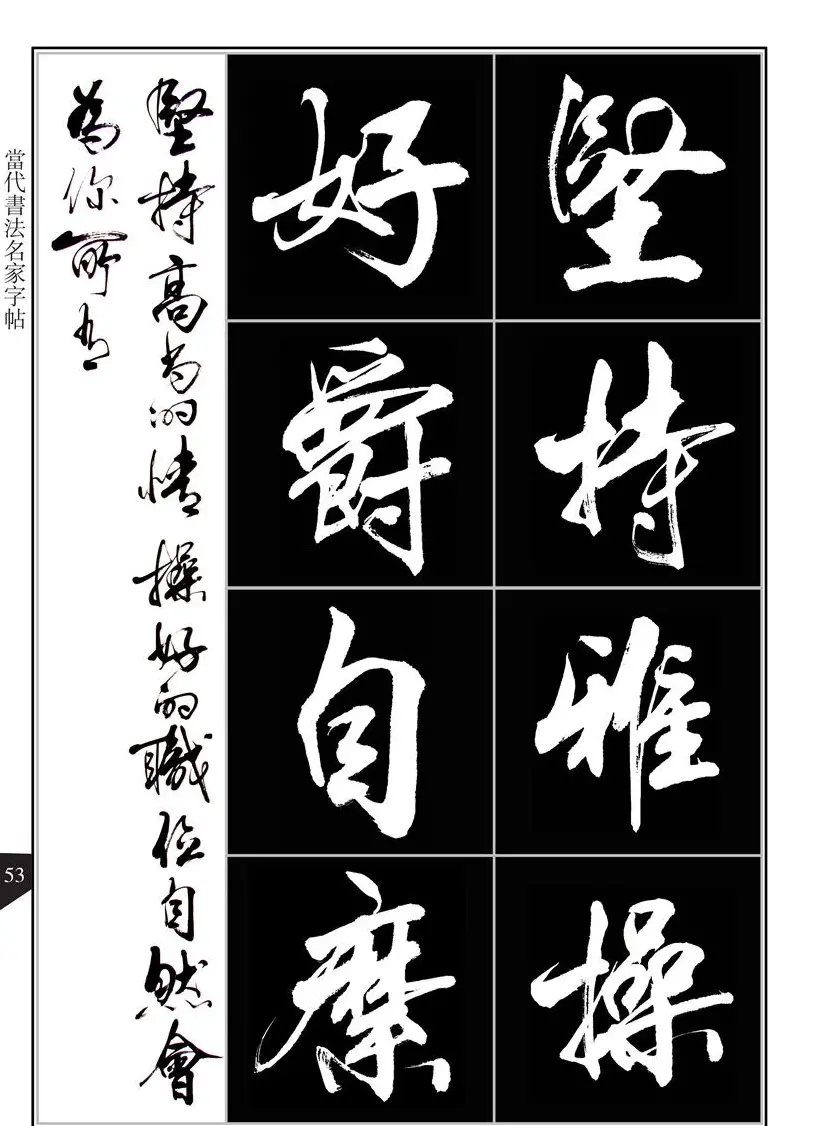 堅持雅操
好爵自縻
堅持高尚的情操好的職位自然會
為你所有
當代書法名家字帖
53